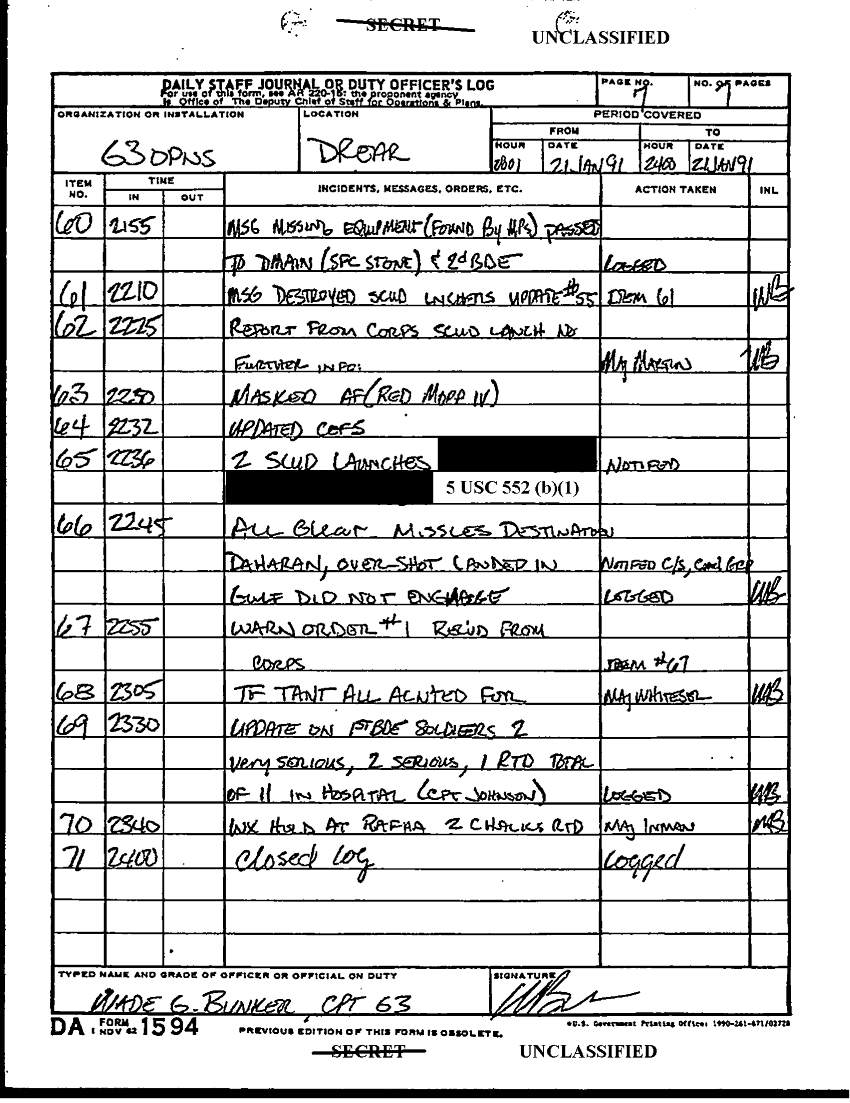 SECRET
UNCLASSIFIED
DAILY STAFF JOURNAL OR DUTY OFFICER'S LOG
For use of this form, see AR 220-15; the proponent agency
is Office of The Deputy Chief of Staff for Operations & Plans.
PAGE NO.
7
NO. OF PAGES
7
ORGANIZATION OR INSTALLATION
G3 OPNS
LOCATION
DREAR
PERIOD COVERED
FROM
TO
HOUR
DATE
HOUR
DATE
0001
21 JAN 91
2400
21 JAN 91
ITEM NO.
TIME
IN
OUT
INCIDENTS, MESSAGES, ORDERS, ETC.
ACTION TAKEN
INL
60 2155 MSG MISSING EQUIPMENT (FOUND By MPs) PASSED
TO DMAIN (SFC STONE) & 2d BDE LOGGED
61 2210 MSG DESTROYED SCUD LNCHERS UPDATE #55 ITEM 61 WB
62 2225 REPORT FROM CORPS SCUD LANCH NO
FURTHER INFO: MAJ MARTIN WB
63 2230 MASKED AF (RED MOPP IV)
64 2232 UPDATED CEFS
65 2236 2 SCUD LAUNCHES NOTIFED
5 USC 552 (b)(1)
66 2245 ALL Clear MISSLES DESTINATON
DAHARAN, OVER-SHOT LANDED IN NOTIFED C/S, Cmd GRP
GULF DID NOT ENGAGE LOGGED WB
67 2255 WARN ORDER #1 REC'VD FROM
CORPS ITEM #67
68 2305 TF TANT ALL ACNTED FOR MAJ WHITESEL WB
69 2330 UPDATE ON 1ST BDE SOLDIERS 2
Very SERIOUS, 2 SERIOUS, 1 RTD TOTAL
OF 11 IN HOSPITAL (CPT JOHNSON) LOGGED WB
70 2340 WX HOLD AT RAFHA 2 CHALKS RTD MAJ INMON WB
71 2400 Closed log Logged
TYPED NAME AND GRADE OF OFFICER OR OFFICIAL ON DUTY
WADE G. BUNKER, CPT G3
SIGNATURE
DA FORM 1 NOV 62 1594
PREVIOUS EDITION OF THIS FORM IS OBSOLETE.
*U.S. Government Printing Office: 1990-261-871/03728
SECRET
UNCLASSIFIED